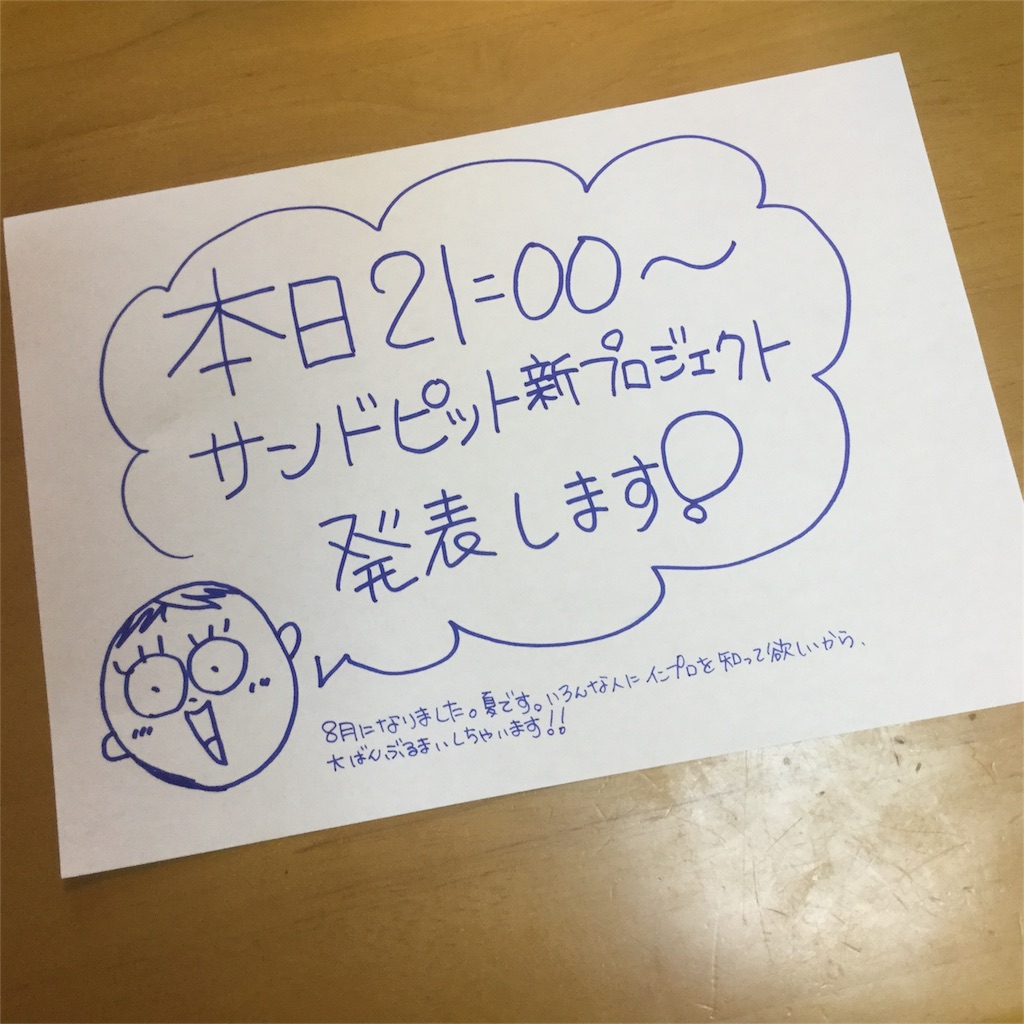 本日21:00〜
サンドピット新プロジェクト
発表します!
8月になりました。夏です。いろんな人にインプロを知って欲しいから、
大ばんぶるまいしちゃいます!!